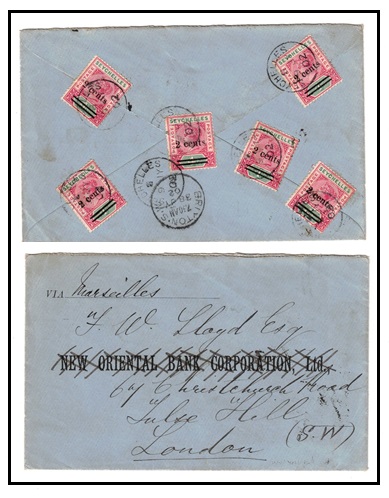 SEYCHELLES
2 cents
SEYCHELLES
2 cents
SEYCHELLES
2 cents
SEYCHELLES
2 cents
SEYCHELLES
2 cents
2 cents
SEYCHELLES
02
BRIXTON. S.W.
7.30AM
02
VIA Marseilles
F. W. Lloyd Esq
NEW ORIENTAL BANK CORPORATION, Ltd.,
67 Christchurch Road
Tulse Hill
London (S.W)